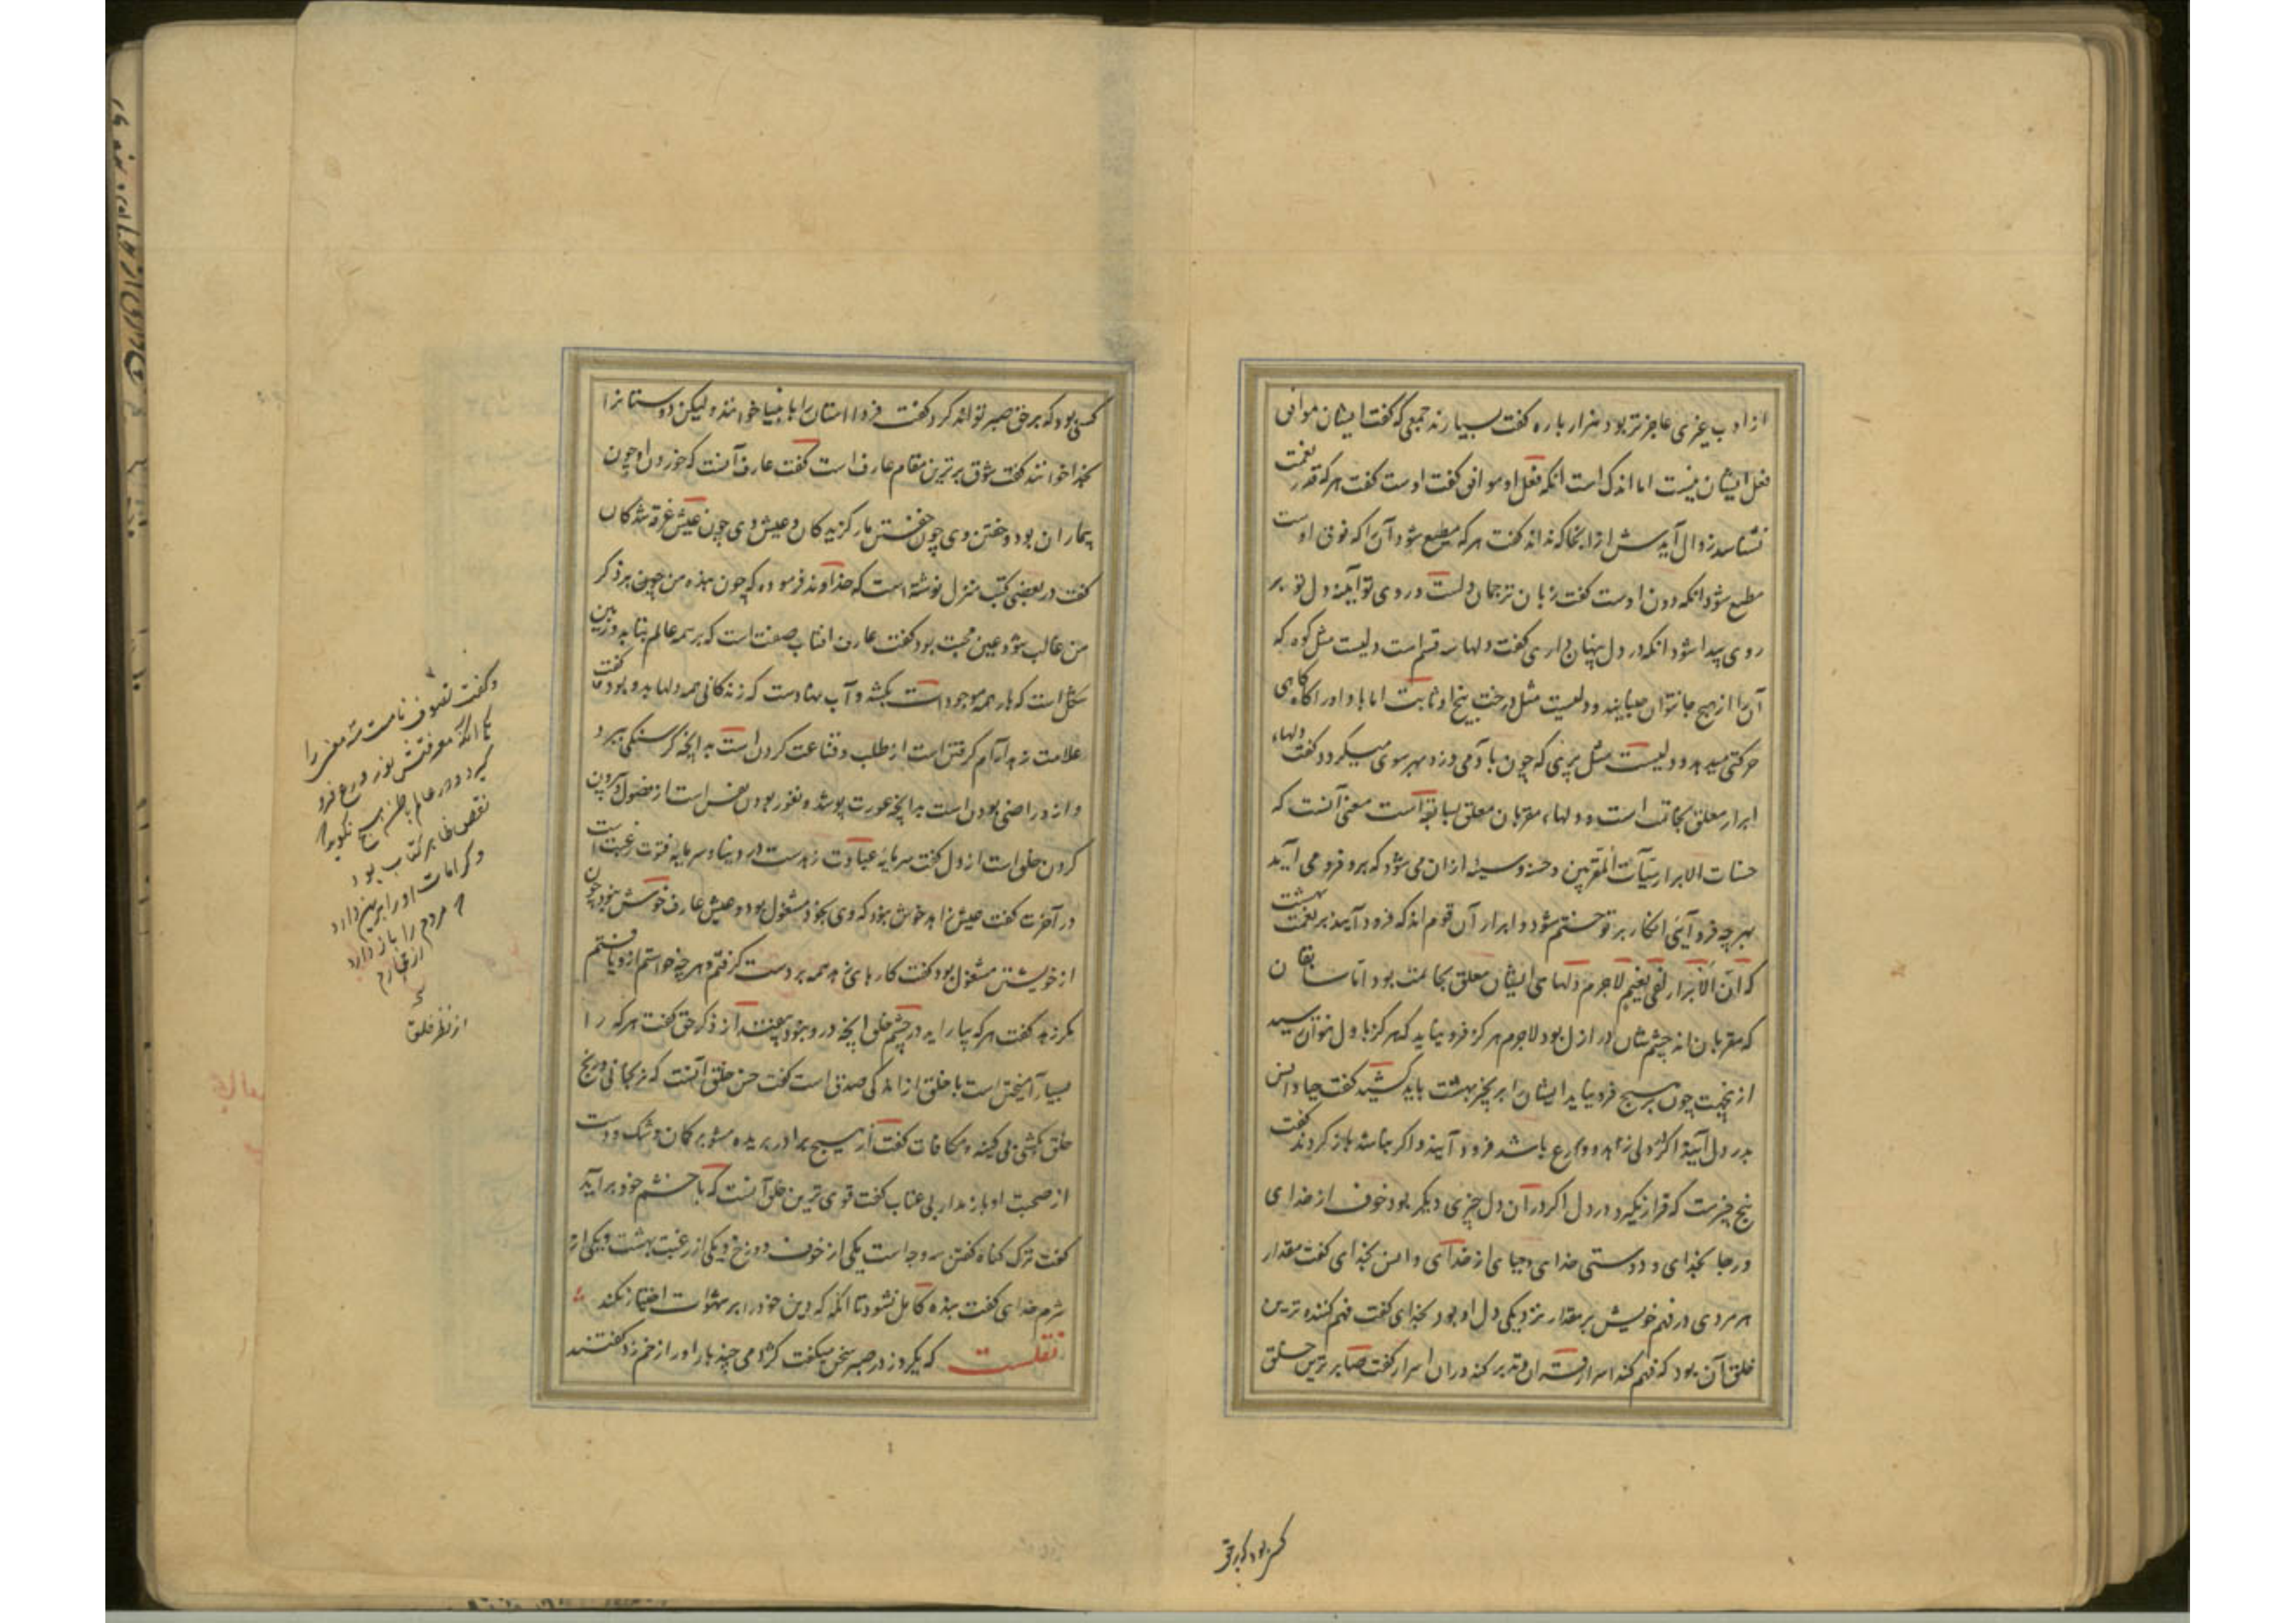 از ادب غیری عاجزتر بود هزار باره گفت بسیارند جمعی که گفت ایشان موافق
فعل ایشان نیست اما اندک است آنکه فعل او موافق گفت اوست گفت هر که قدر نعمت
نشناسد زوال آیدش از آنجا که نداند گفت هر که مطیع شود آن را که فوق اوست
مطیع شود آنکه دون اوست گفت زبان ترجمان دلست و روی تو آیینه دل تو بر
روی پیدا شود آنکه در دل پنهان داری گفت دلها سه قسم است دلیست مثل کوه که
آن را از هیچ جا نتوان جنبانید و دلیست مثل درخت بیخ او ثابت اما باد او را گاه گاهی
حرکتی میدهد و دلیست مثل پری که چون باد می وزد بهر سوی میگردد و گفت دلهاء
ابرار معلق بخاتمت است و دلهاء مقربان معلق بسابقه است معنی آنست که
حسنات الابرار سیآت المقربین و حسنه و سیئه از ان می شود که برو فرو می آید
بهر چه فرو آیی آن کار بر تو ختم شود و ابرار آن قوم اند که فرود آیند بر نعمت بهشت
که ان الابرار لفی نعیم لاجرم دلهای ایشان معلق بخاتمت بود اما سابقان
که مقربان اند چشم شان در ازل بود لاجرم هرگز فرو نیاید که هرگز باول نتوان رسید
از نجهت چون بر هیچ فرو نیاید ایشان را بزنجیر بهشت باید کشید گفت حیا و انس
بدر دل آیند اگر در دلی زهد و ورع باشد فرود آیند و اگر نباشد بازگردند گفت
پنج چیزست که قرار نگیرد در دل اگر در آن دل چیزی دیگر بود خوف از خدای
و رجا بخدای و دوستی خدای و حیای از خدای و انس بخدای گفت مقدار
هر مردی در فهم خویش بر مقدار نزدیکی دل او بود بخدای گفت فهم کننده ترین
خلق آن بود که فهم کند اسرار قران و تدبر کند در ان اسرار گفت صابر ترین خلق
کسی بود که بر حق
کسی بود که بر حق صبر تواند کرد گفت فردا امتان را بانبیا خوانند و لیکن دوستانرا
بخدا خوانند گفت شوق برترین مقام عارف است گفت عارف آنست که خوردن او چون
بیماران بود و خفتن وی چون خفتن مارگزیدگان و عیش وی چون عیش غرقه شدگان
گفت در بعضی کتب منزل نوشته است که خداوند فرموده که چون بنده من چنین بر ذکر
من غالب شود عین محبت بود گفت عارف افتاب صفت است که بر همه عالم بتابد و زمین
شکل است که بار همه موجودات بکشد و آب نهادست که زندگانی همه دلها بدو بود گفت
علامت زهد آرام گرفتن است از طلب و قناعت کردن است بدانچه گرسنگی ببرد
و از در راضی بودن است بدانچه عورت پوشد و نفور بودن نفس است از فضول و بیرون
کردن خلق است از دل گفت سرمایه عبادت زهدست در دنیا و سرمایه فتوت رغبت است
در آخرت گفت عیش زاهد خوش نبود که وی بخود مشغول بود و عیش عارف خوش بود چون
از خویشتن مشغول بود گفت کارهای زهد همه بر دست گرفتم و هر چه خواستم ازو یافتم
مگر زهد گفت هر که بیاراید در چشم خلق آنچه درو نبود بیفتد از ذکر حق گفت هر که را
بسیار آمیختن است با خلق از اندکی صدق است گفت حسن خلق آنست که نرنجانی و رنج
خلق کشی بی کینه و مکافات گفت از هیچ برادر بریده مشو بر گمان و شک و دست
از صحبت او باز مدار بی عتاب گفت قوی ترین خلق آنست که با خشم خود برآید
گفت ترک گناه گفتن سه وجه است یکی از خوف دوزخ و یکی از رغبت بهشت و یکی از
شرم خدای گفت بنده کامل نشود تا آنگه که دین خود را بر شهوات اختیار نکند
نقلست که یکروز در صبر سخن میگفت کژدمی چند بار او را زخم زد گفتند
و گفت تصوف نامیست سه معنی را
تا آنکه معرفتش نور ورع فرو
گیرد و در علم باطن هیچ نگوید
نقض ظاهر کتاب بود
و کرامات او را برین دارد
مردم را باز دارد
از محارم
از نظر خلق